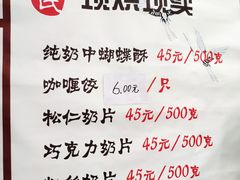 现烘现卖
纯奶中蝴蝶酥 45元/500克
咖喱饺 6.00元/只
松仁奶片 45元/500克
巧克力奶片 45元/500克
奶片 45元/500克